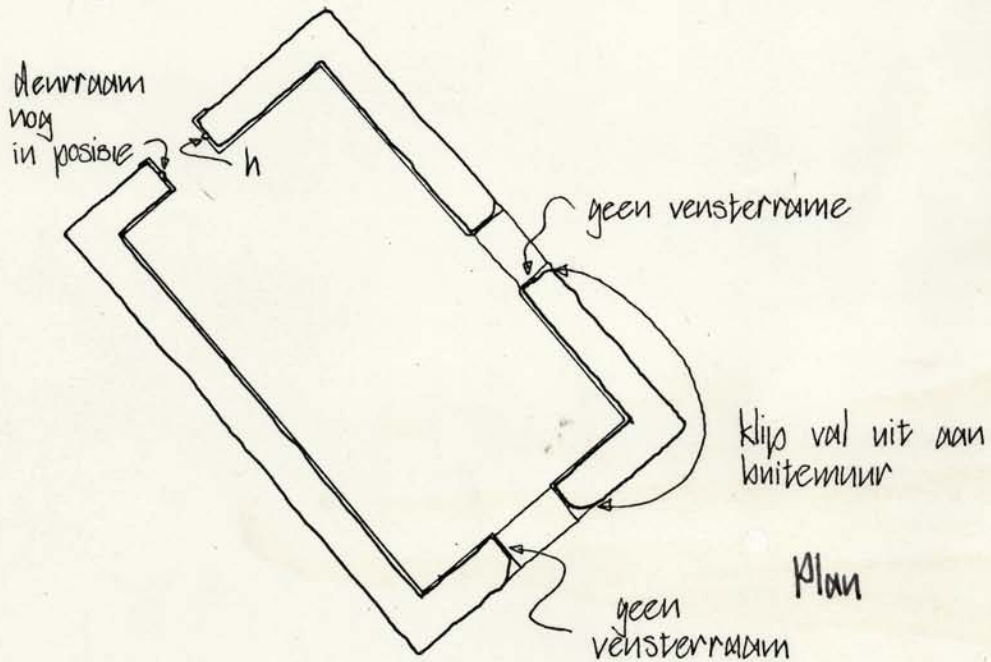 deurraam
nog
in posisie
h
geen vensterrame
klip val uit aan
buitemuur
Plan
geen
vensterraam